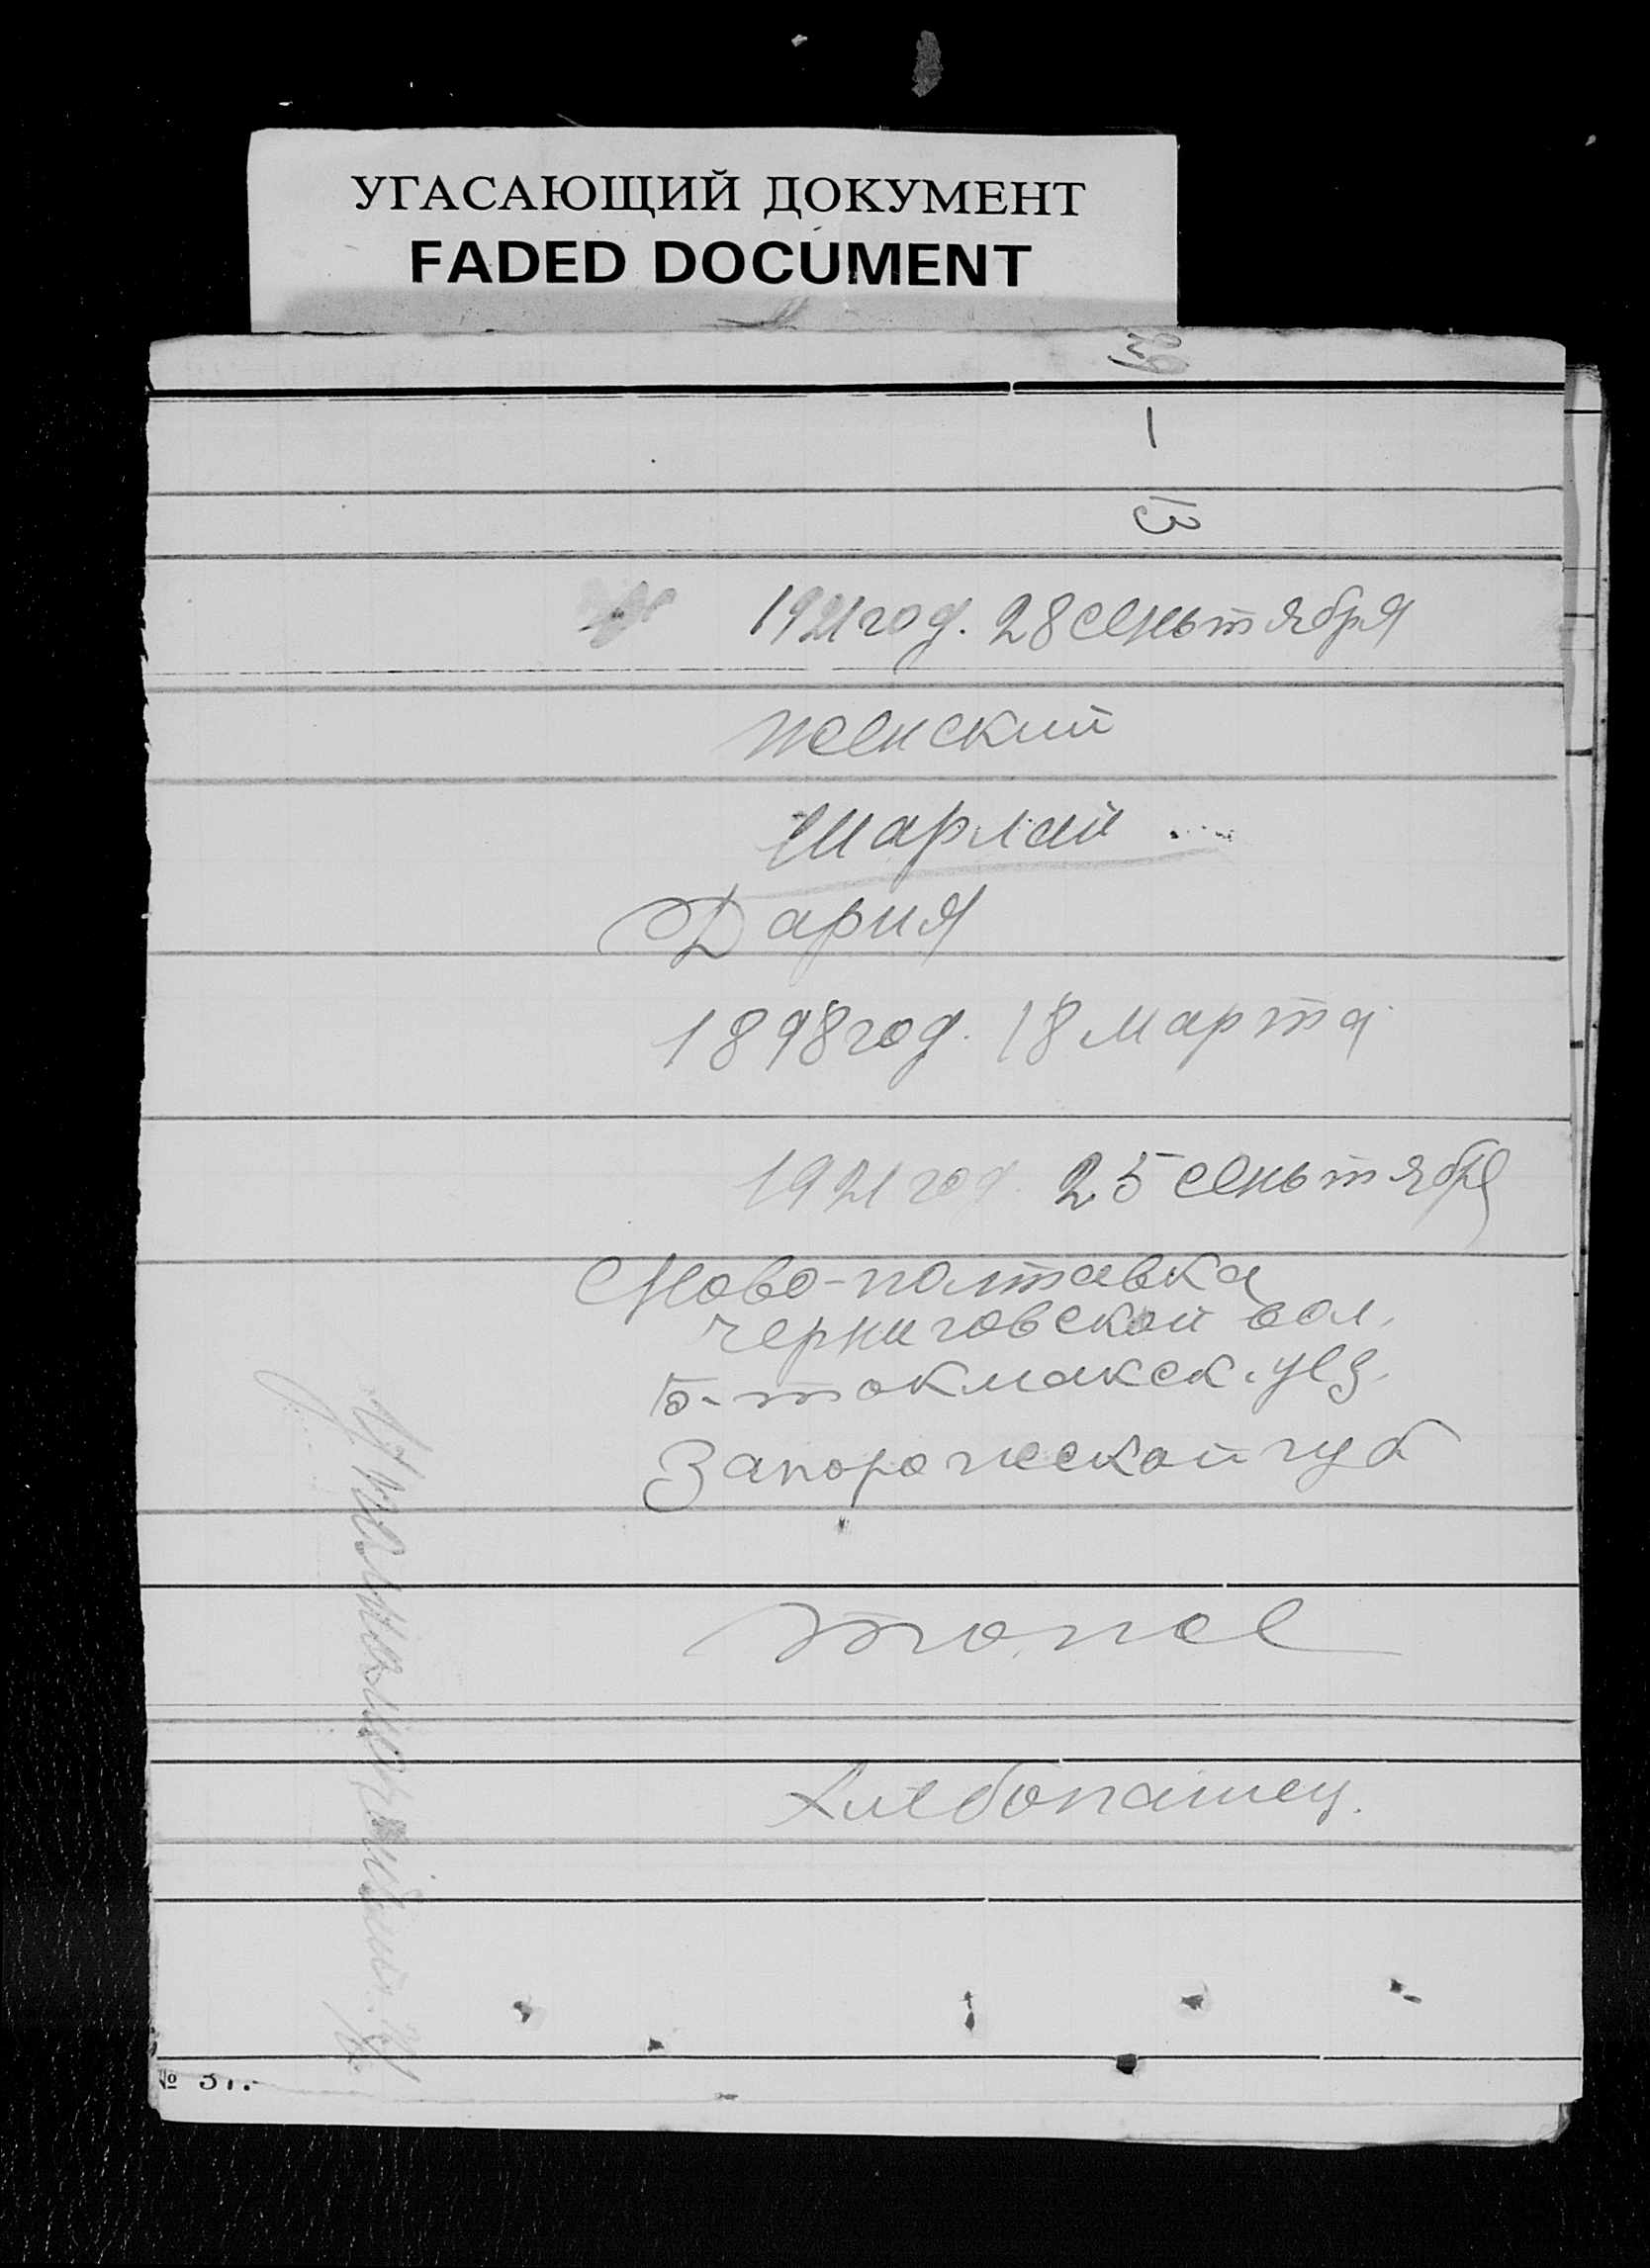 УГАСАЮЩИЙ ДОКУМЕНТ
FADED DOCUMENT
29
1
13
1921 год. 28 сеньтября
женский
Шарлай
Дария
1898 год. 18 марта
1921 год 25 сеньтябре
Ново-полтавка
черниговской вол.
Б-токмакск. уез.
Запорожской губ
тоже
Хлебопашец.
№ 31.